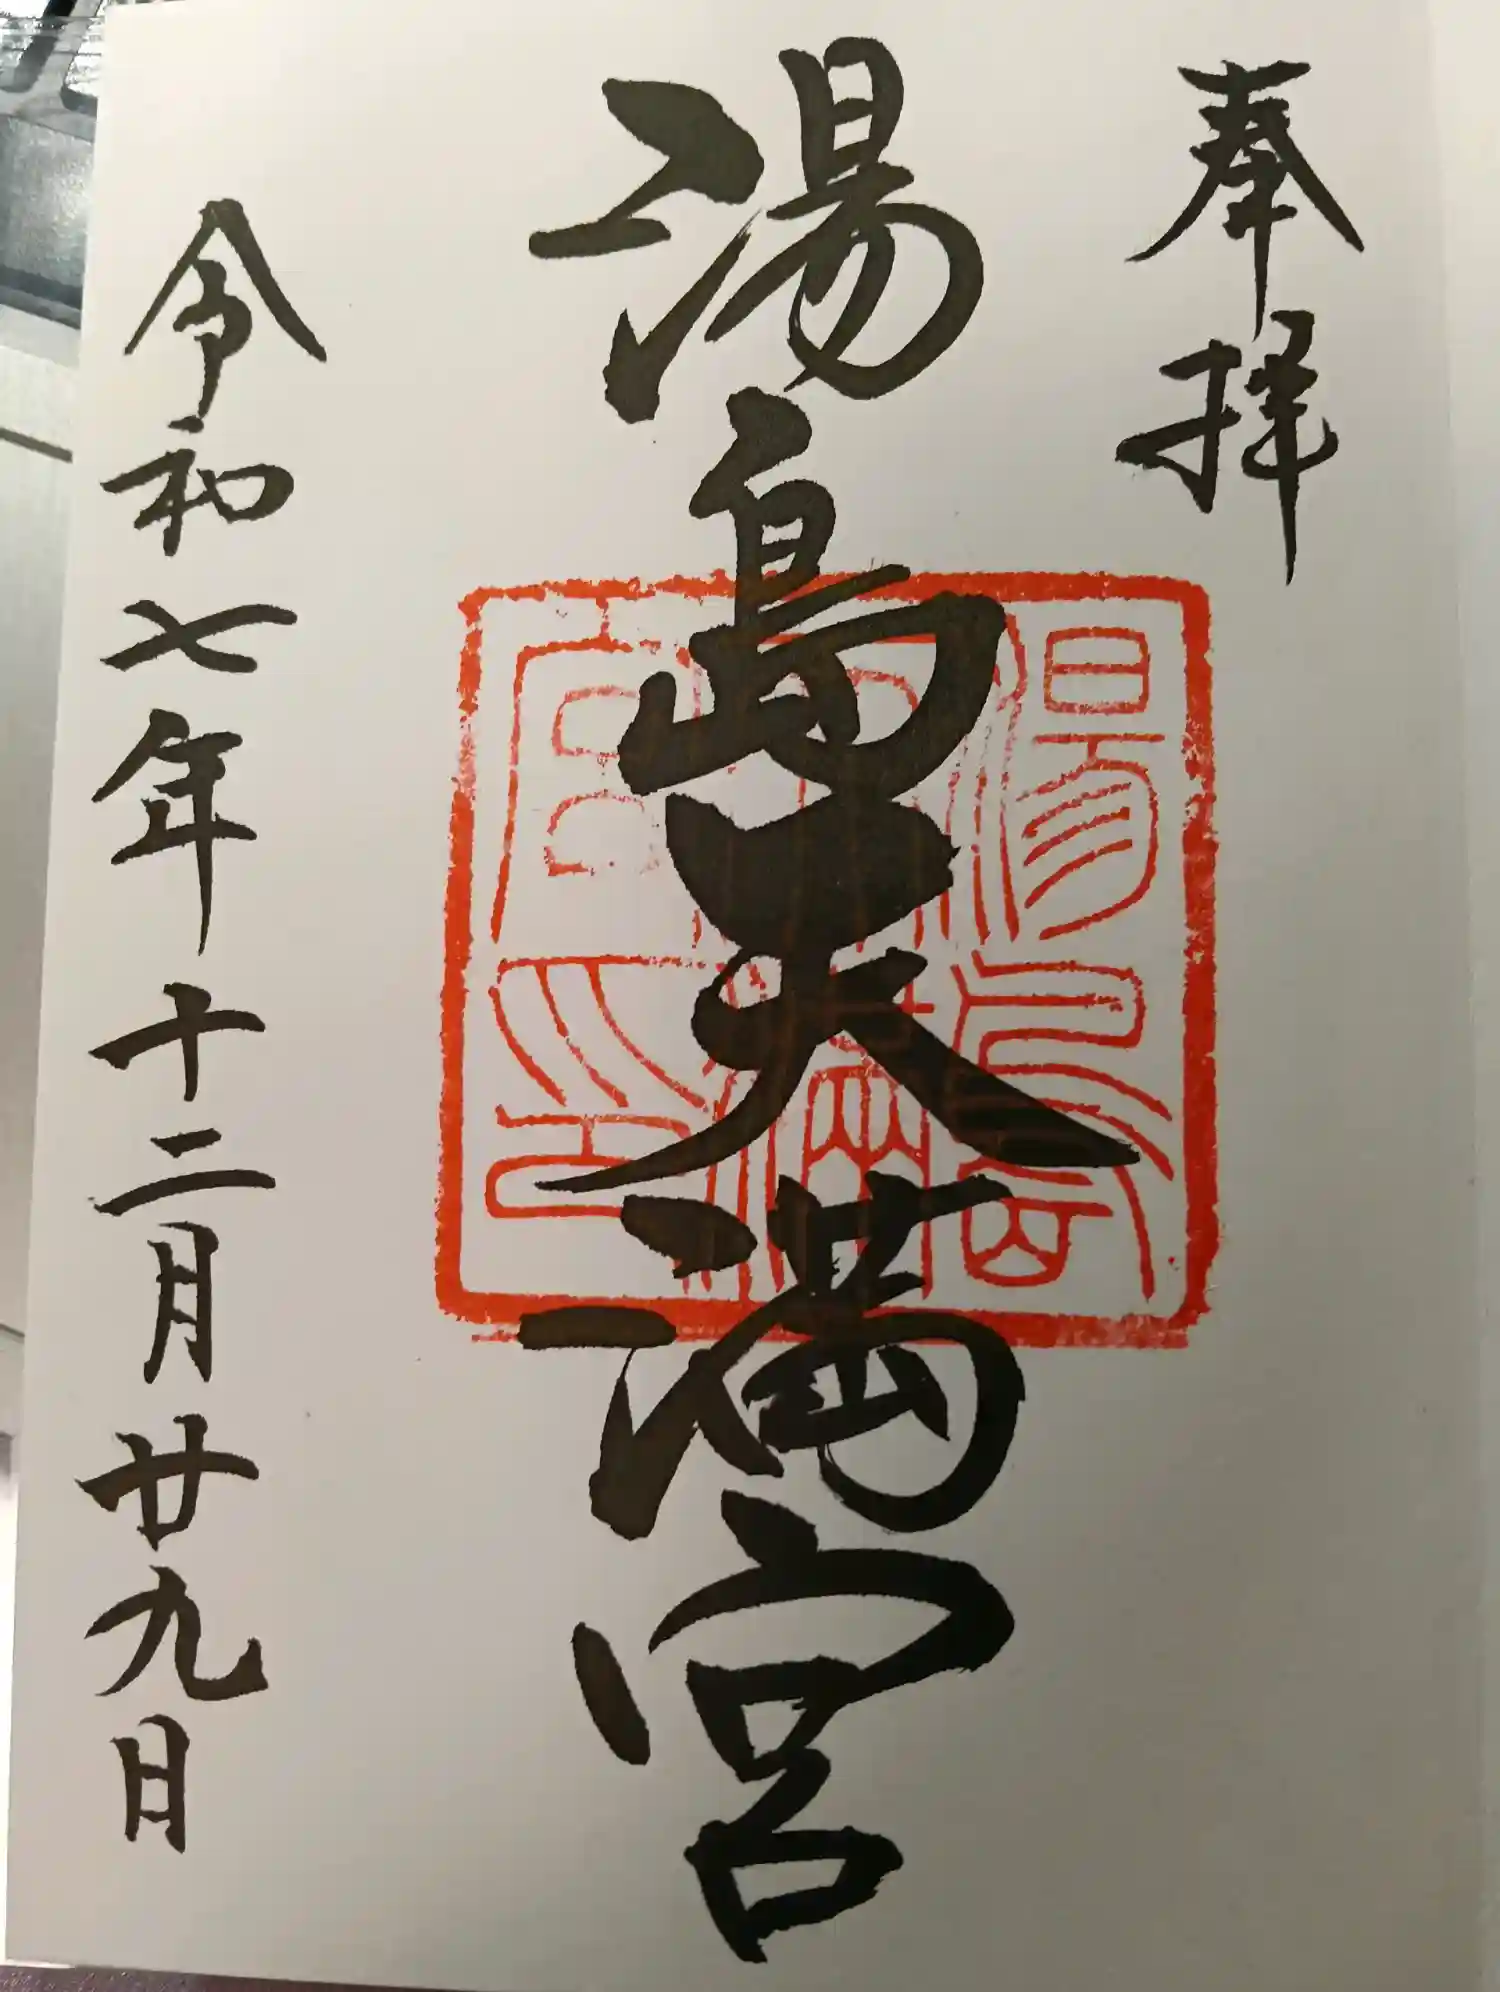 奉拝
湯島天満宮
湯島天満宮印
令和七年十二月廿九日